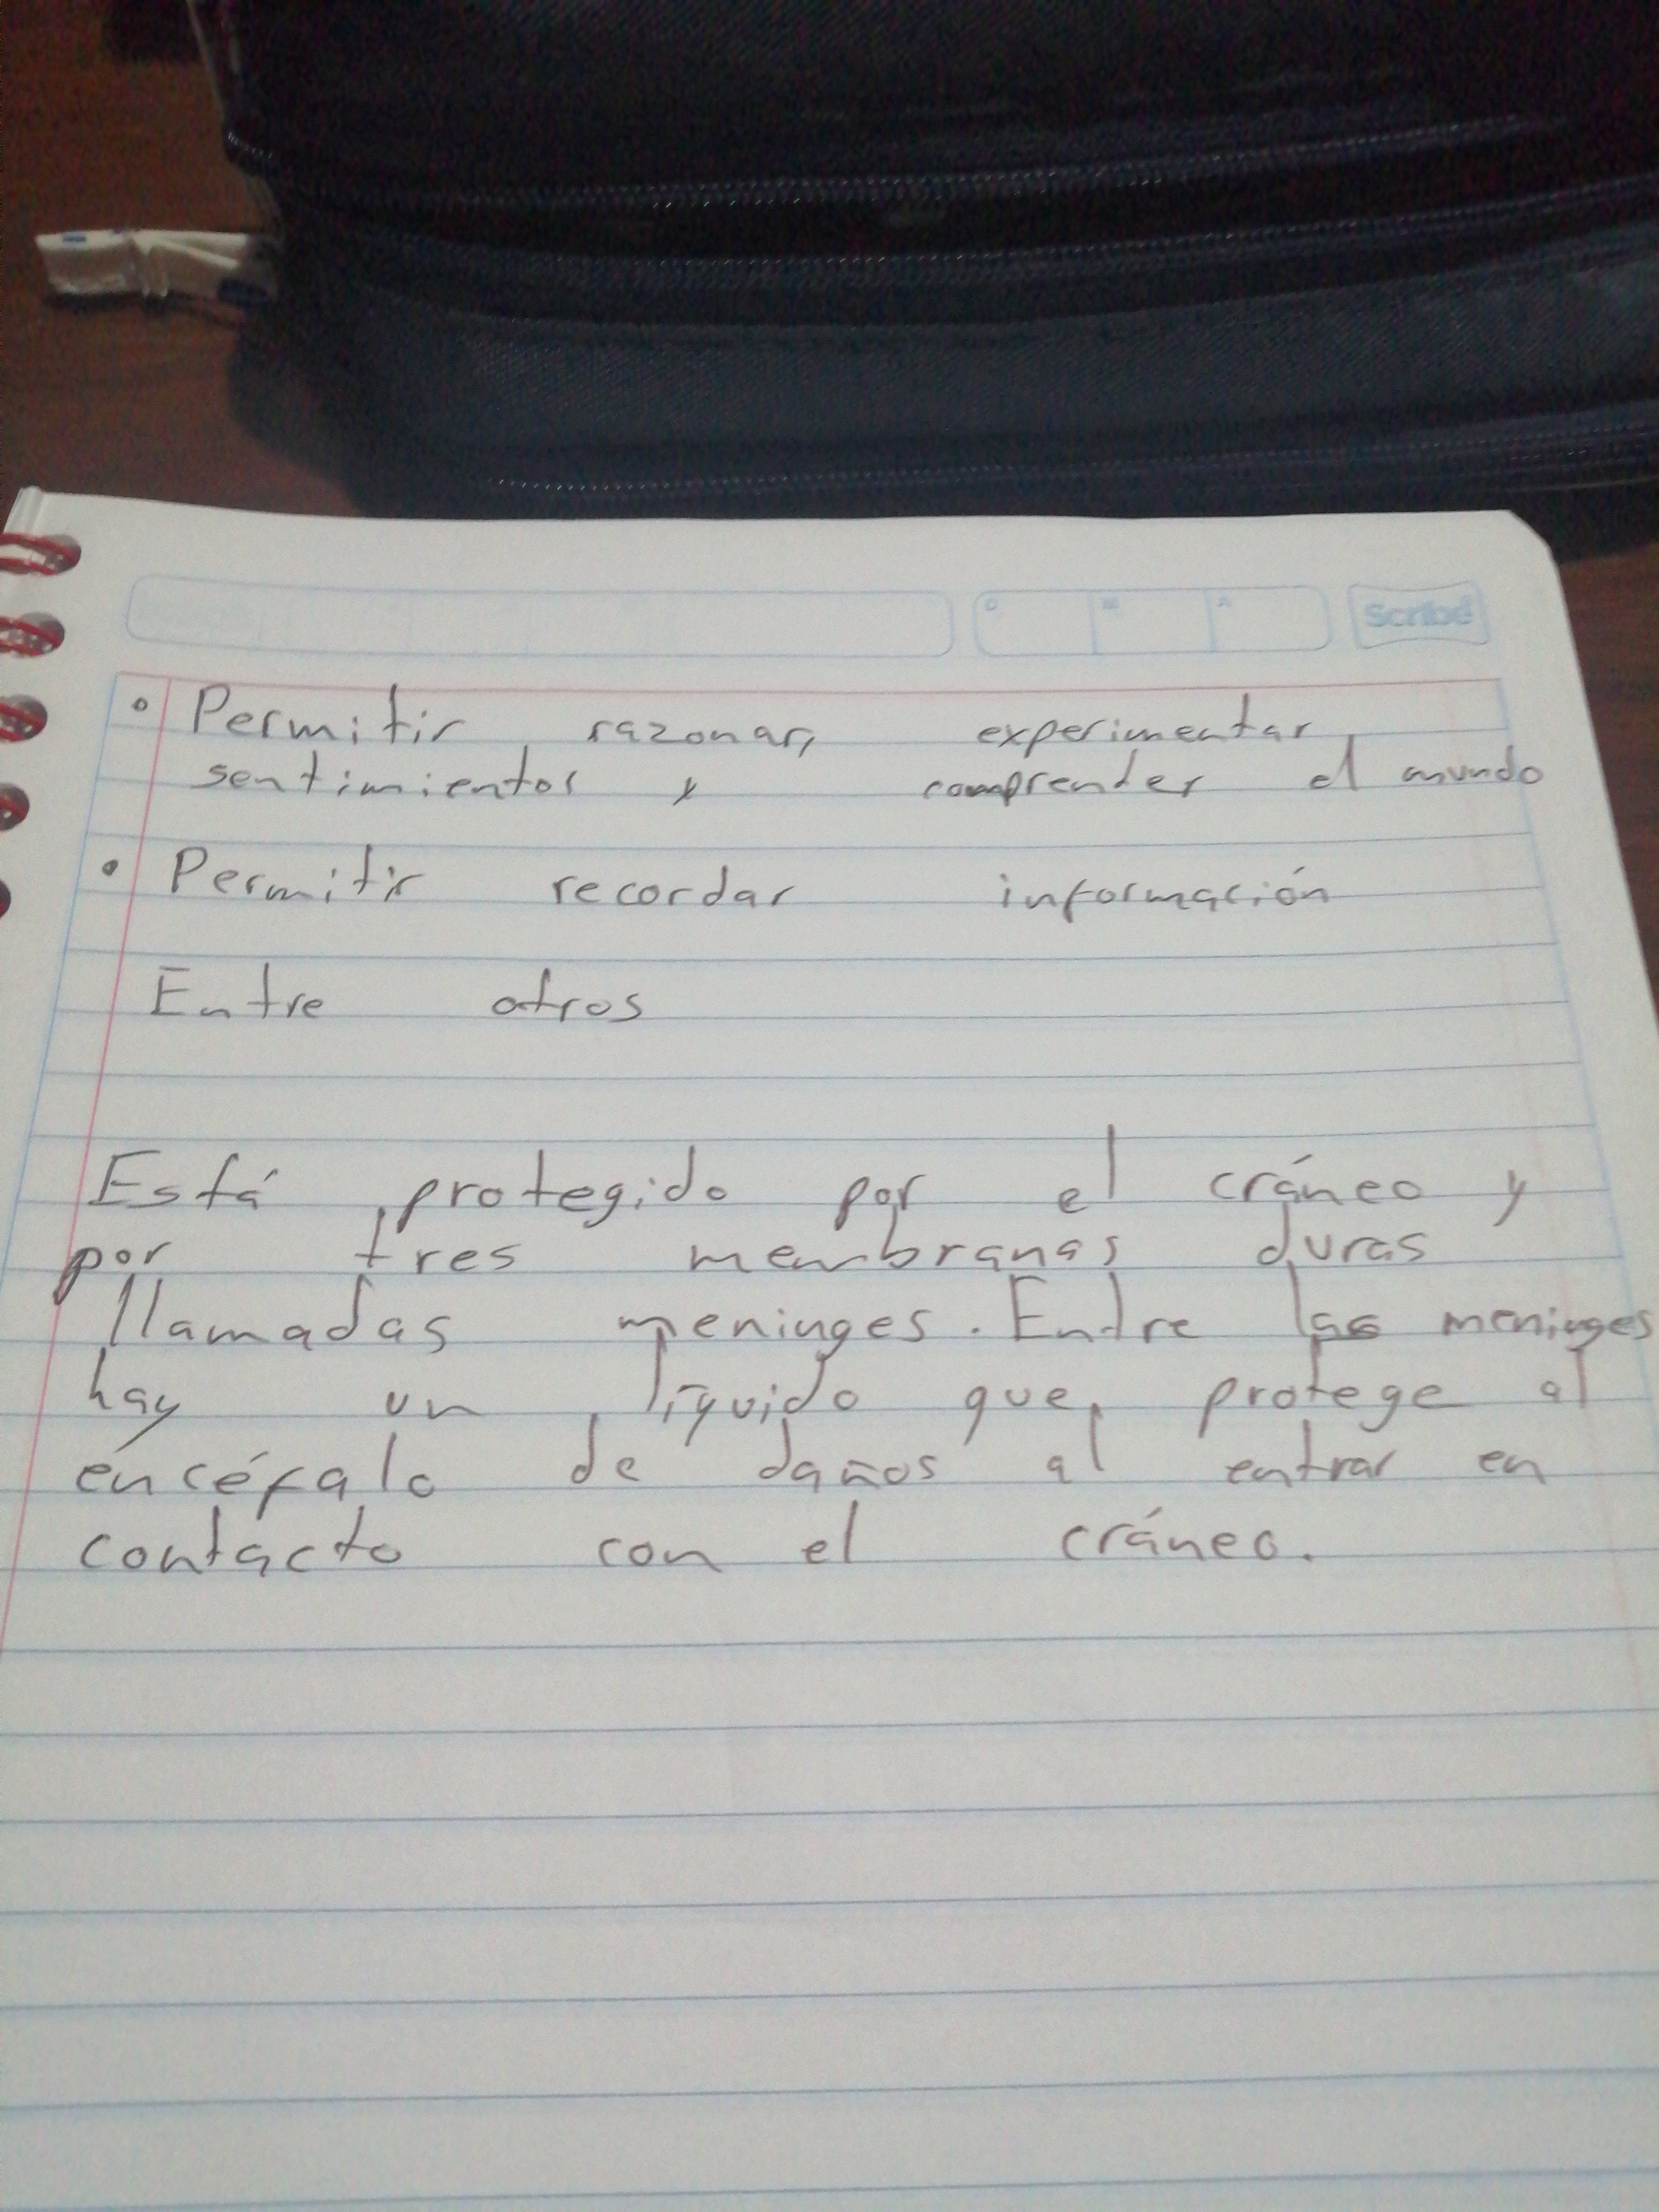 Scribe
D M A
• Permitir razonar, experimentar
sentimientos y comprender el mundo
• Permitir recordar información
Entre otros
Está protegido por el cráneo y
por tres membranas duras
llamadas meninges. Entre las meninges
hay un líquido que protege al
encéfalo de daños al entrar en
contacto con el cráneo.